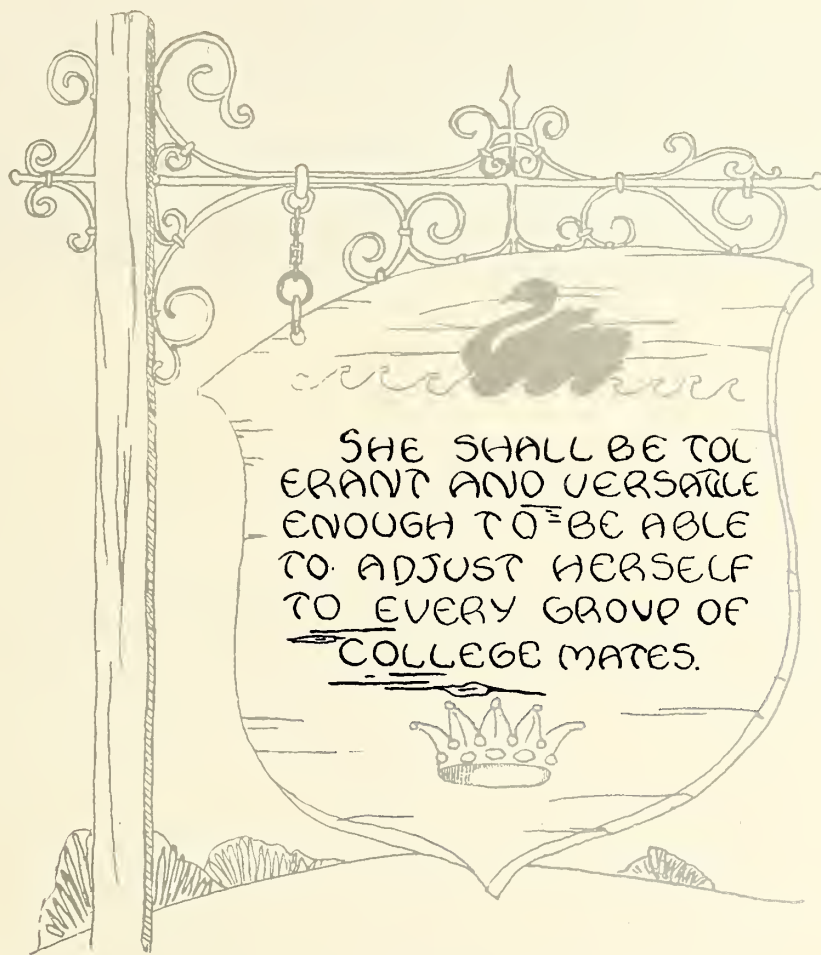 SHE SHALL BE TOL
ERANT AND VERSATILE
ENOUGH TO BE ABLE
TO ADJUST HERSELF
TO EVERY GROUP OF
COLLEGE MATES.